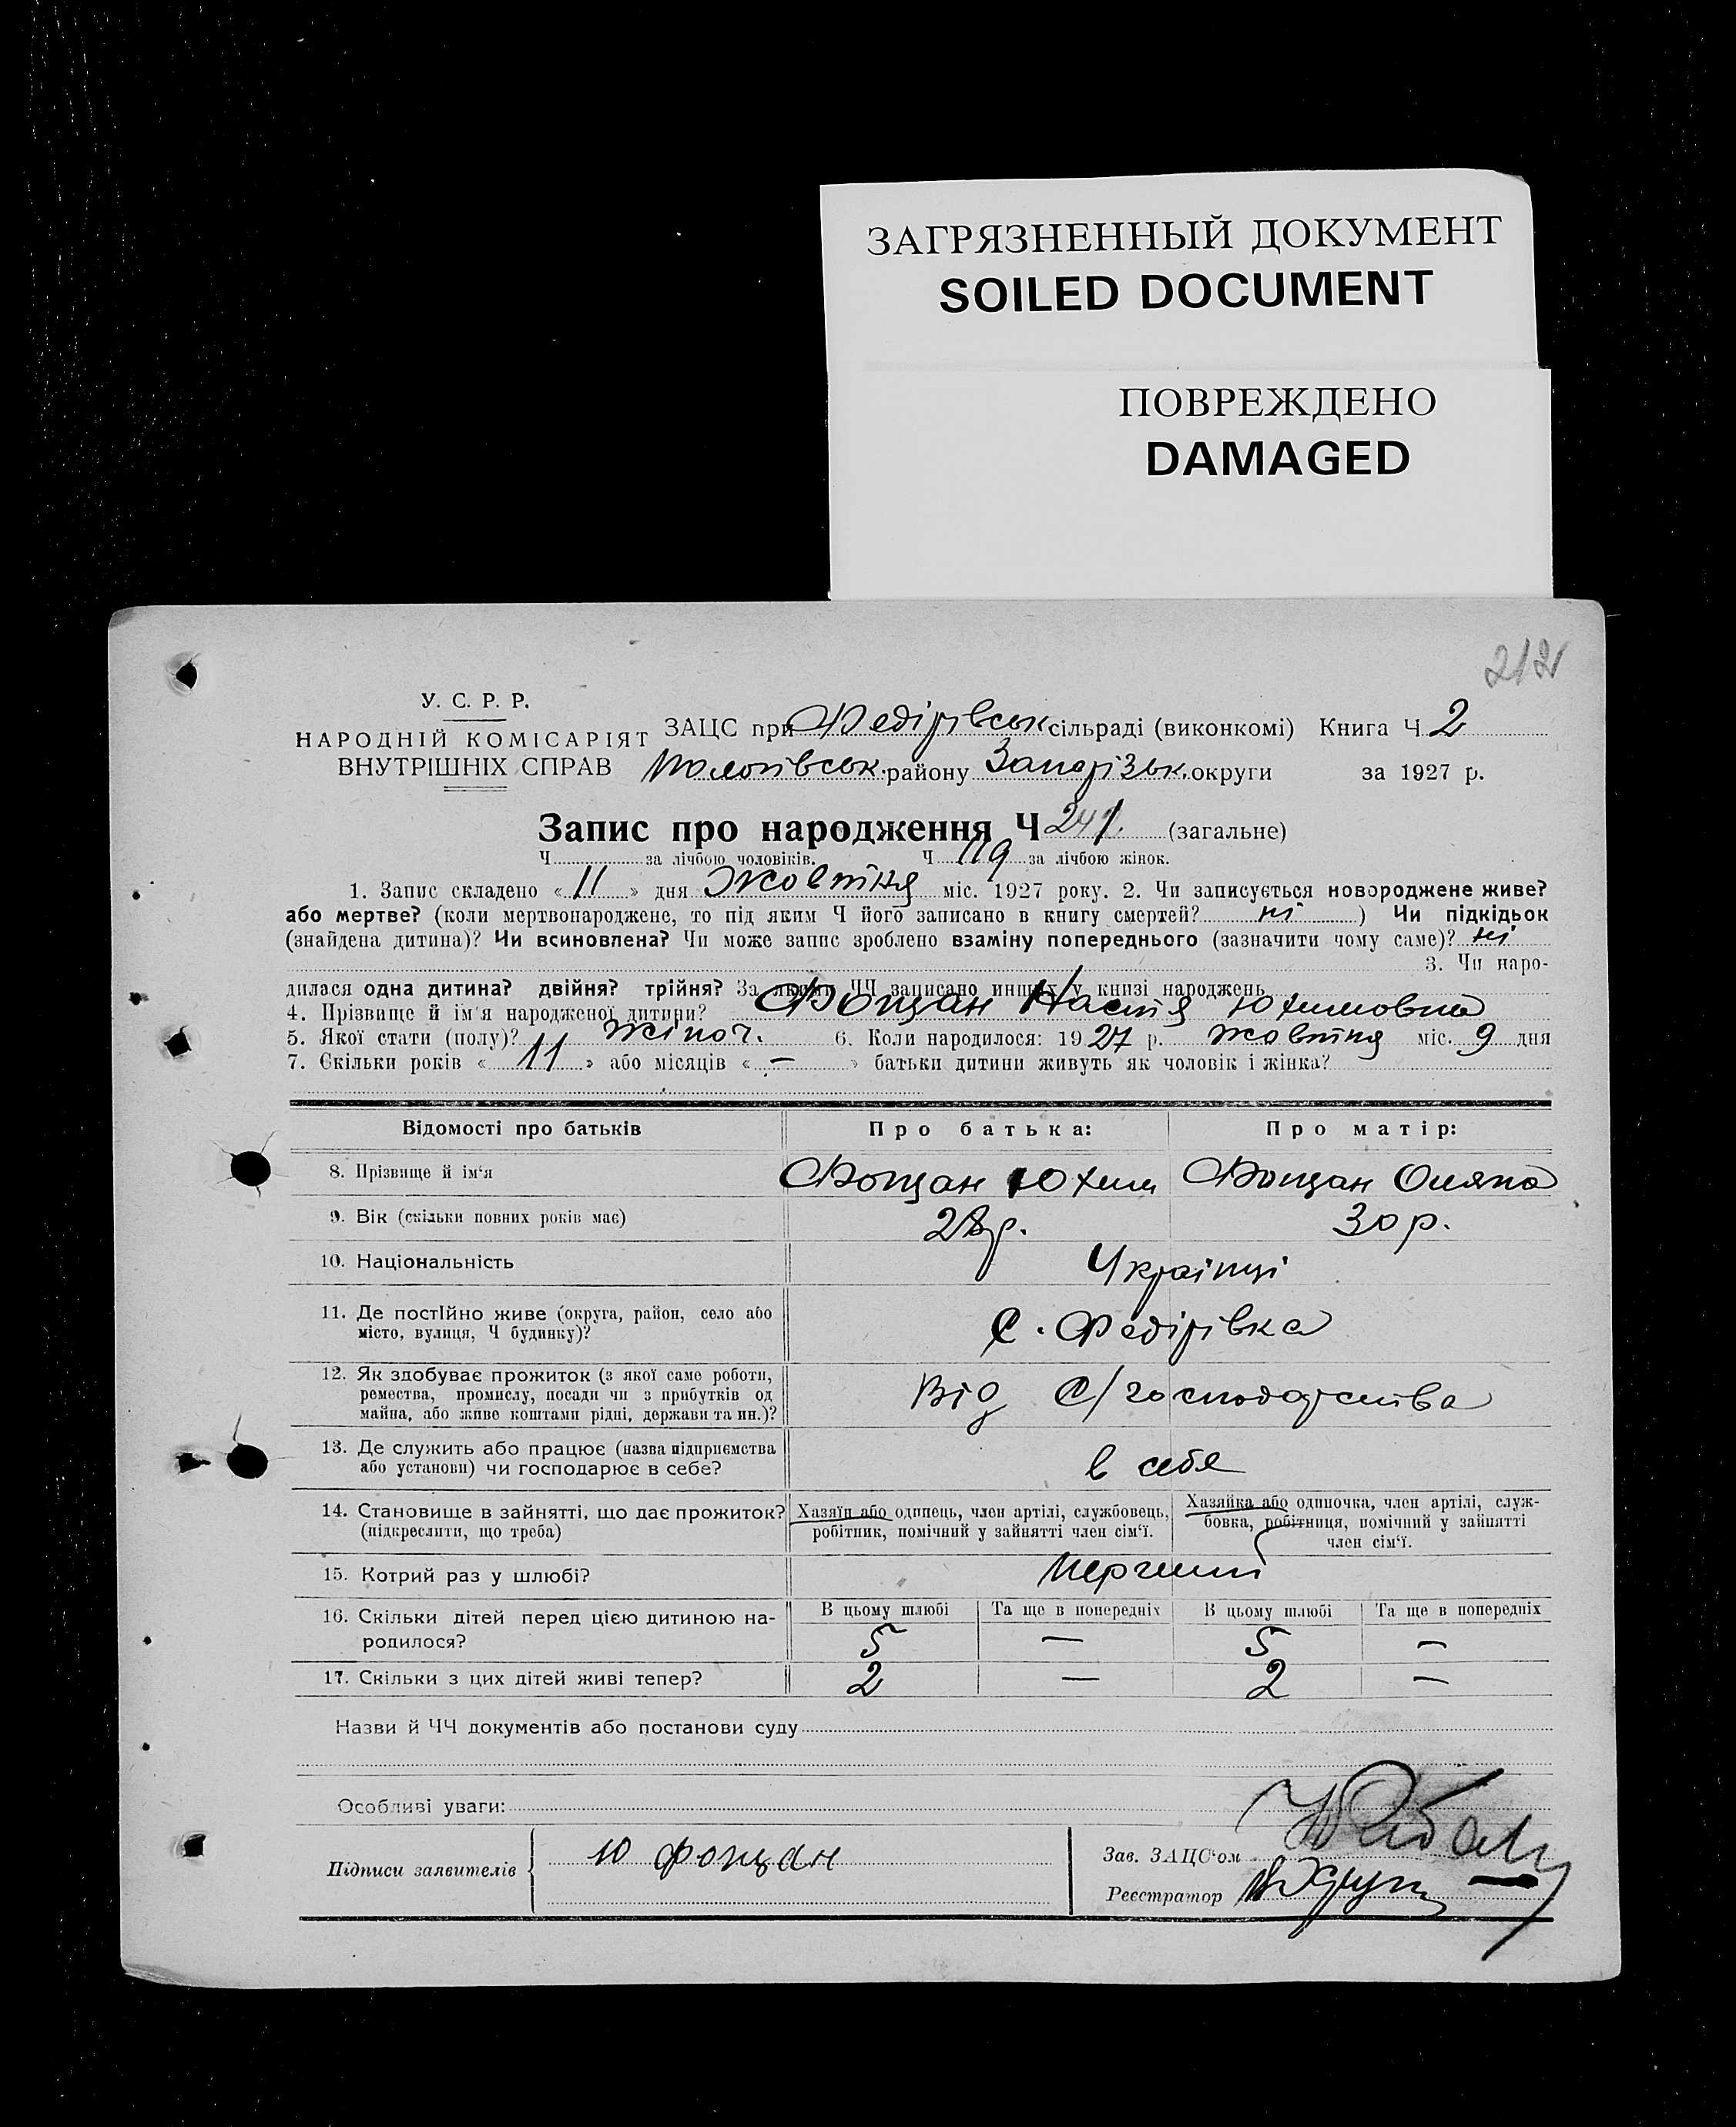 ЗАГРЯЗНЕННЫЙ ДОКУМЕНТ
SOILED DOCUMENT
ПОВРЕЖДЕНО
DAMAGED
212
У. С. Р. Р.
НАРОДНІЙ КОМІСАРІЯТ
ВНУТРІШНІХ СПРАВ
ЗАЦС при Федірівськ сільраді (виконкомі) Книга Ч 2
Пологівськ. району Запорізьк. округи за 1927 р.
Запис про народження Ч 241. (загальне)
Ч за лічбою чоловіків. Ч 119 за лічбою жінок.
1. Запис складено « 11 » дня Жовтня міс. 1927 року. 2. Чи записується новороджене живе?
або мертве? (коли мертвонароджене, то під яким Ч його записано в книгу смертей? ні ) Чи підкідьок
(знайдена дитина)? Чи всиновлена? Чи може запис зроблено взаміну попереднього (зазначити чому саме)? ні
3. Чи наро-
дилася одна дитина? двійня? трійня? За якими ЧЧ записано инших у книзі народжень
4. Прізвище й ім'я народженої дитини? Фощан Настя Юхимовна
5. Якої стати (полу)? Жіноч. 6. Коли народилося: 1927 р. жовтня міс. 9 дня
7. Скільки років « 11 » або місяців « — » батьки дитини живуть як чоловік і жінка?
Відомості про батьків Про батька: Про матір:
8. Прізвище й ім'я Фощан Юхим Фощан Оляна
9. Вік (скільки повних років має) 28 р. 30 р.
10. Національність Українці
11. Де постійно живе (округа, район, село або
місто, вулиця, Ч будинку)? С. Федірівка
12. Як здобуває прожиток (з якої саме роботи,
ремества, промислу, посади чи з прибутків од
майна, або живе коштами рідні, держави та ин.)? Від С/господарства
13. Де служить або працює (назва підприємства
або установи) чи господарює в себе? в себе
14. Становище в зайнятті, що дає прожиток?
(підкреслити, що треба)
Хазяїн або одинець, член артілі, службовець,
робітник, помічний у зайнятті член сім'ї.
Хазяйка або одиночка, член артілі, служ-
бовка, робітниця, помічний у зайнятті
член сім'ї.
15. Котрий раз у шлюбі? Перший
16. Скільки дітей перед цією дитиною на-
родилося?
В цьому шлюбі Та ще в попередніх В цьому шлюбі Та ще в попередніх
5 — 5 —
17. Скільки з цих дітей живі тепер? 2 — 2 —
Назви й ЧЧ документів або постанови суду
Особливі уваги:
Підписи заявителів Ю фощан
Зав. ЗАЦС'ом
Реєстратор